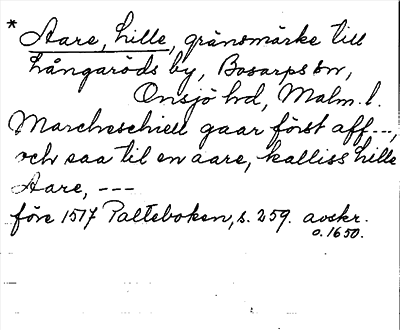 * Aare, Lille, gränsmärke till
Långaröds by, Bosarps sn,
Onsjö hd, Malm. l.
Marckeschiell gaar först aff ---,
och saa til en aare, kalliss Lille
Aare, ---
före 1517 Palteboken, s. 259. avskr.
o. 1650.